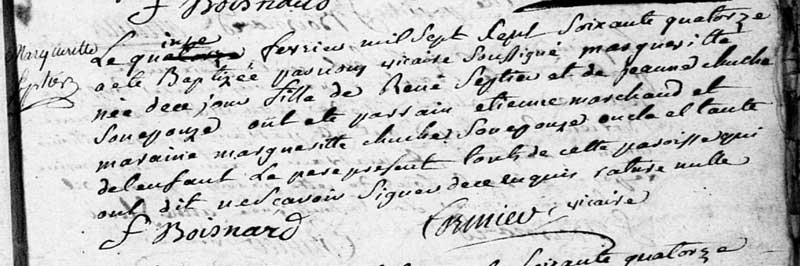 f Boisnard
Margueritte
inze
Le quatorze fevrier mil sept sept soixante quatorze
a ete Baptizée par nous vicaire soussigné margueritte
née de ce jour fille de René Septier et de jeanne chuche
son epouze ont ete parrain etienne marchand et
maraine margueritte chuche son epouze oncle et tante
de lenfant Le pere present touts de cette paroisse qui
ont dit ne scavoir signer de ce enquis rature nulle
f Boisnard Cormier vicaire
soixante quatorze